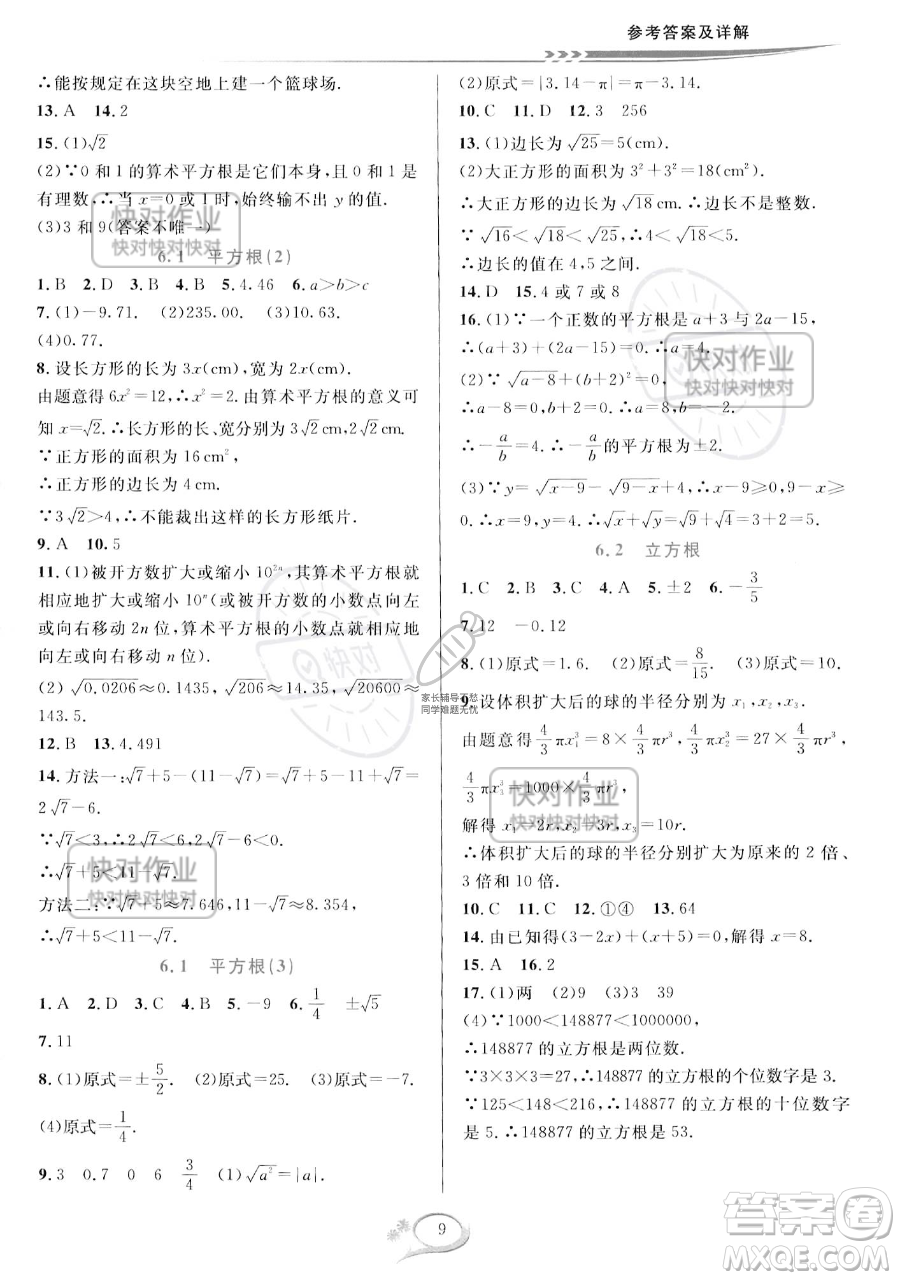 参考答案及详解
∴能按规定在这块空地上建一个篮球场.
13. A 14. 2
15. (1)√2
(2)∵0 和 1 的算术平方根是它们本身，且 0 和 1 是
有理数，∴当 x=0 或 1 时，始终输不出 y 的值.
(3)3 和 9(答案不唯一)
6.1 平方根(2)
1. B 2. D 3. B 4. B 5. 4.46 6. a>b>c
7. (1)-9.71. (2)235.00. (3)10.63.
(4)0.77.
8. 设长方形的长为 3x(cm)，宽为 2x(cm).
由题意得 6x²=12，∴x²=2. 由算术平方根的意义可
知 x=√2. ∴长方形的长、宽分别为 3√2 cm，2√2 cm.
∵正方形的面积为 16 cm²，
∴正方形的边长为 4 cm.
∵3√2>4，∴不能裁出这样的长方形纸片.
9. A 10. 5
11. (1)被开方数扩大或缩小 10²ⁿ，其算术平方根就
相应地扩大或缩小 10ⁿ(或被开方数的小数点向左
或向右移动 2n 位，算术平方根的小数点就相应地
向左或向右移动 n 位).
(2) √0.0206≈0.1435，√206≈14.35，√20600≈
143.5.
12. B 13. 4.491
14. 方法一：√7+5-(11-√7)=√7+5-11+√7=
2√7-6.
∵√7<3，∴2√7<6，∴2√7-6<0.
∴√7+5<11-√7.
方法二：∵√7+5≈7.646，11-√7≈8.354，
∴√7+5<11-√7.
6.1 平方根(3)
1. A 2. D 3. C 4. B 5. -9 6. 1/4 ±√5
7. 11
8. (1)原式=±5/2. (2)原式=25. (3)原式=-7.
(4)原式=1/4.
9. 3 0.7 0 6 3/4 (1)√a²=|a|.
(2)原式=|3.14-π|=π-3.14.
10. C 11. D 12. 3 256
13. (1)边长为 √25=5(cm).
(2)大正方形的面积为 3²+3²=18(cm²).
∴大正方形的边长为 √18，边长不是整数.
∵√16<√18<√25，∴4<√18<5.
∴边长的值在 4，5 之间.
14. D 15. 4 或 7 或 8
16. (1)∵一个正数的平方根是 a+3 与 2a-15，
∴(a+3)+(2a-15)=0. ∴a=4.
(2)∵√a-8+(b+2)²=0，
∴a-8=0，b+2=0. ∴a=8，b=-2.
∴-a/b=4. ∴-a/b的平方根为±2.
(3)∵y=√x-9-√9-x，∴x-9≥0，9-x≥
0. ∴x=9，y=0. ∴√x+√y=√9+√0=3.
6.2 立方根
1. C 2. B 3. D 4. A 5. ±2 6. -3/5
7. 12 -0.12
8. (1)原式=1.6. (2)原式=8/15. (3)原式=10.
9. 设体积扩大后的球的半径分别为 x₁，x₂，x₃.
由题意得4/3πx₁³=8×4/3πr³，4/3πx₂³=27×4/3πr³，
4/3πx₃³=1000×4/3πr³.
解得 x₁=2r，x₂=3r，x₃=10r.
∴体积扩大后的球的半径分别扩大为原来的 2 倍、
3 倍和 10 倍.
10. C 11. C 12. ①④ 13. 64
14. 由已知得(3-2x)+(x+5)=0，解得 x=8.
15. A 16. 2
17. (1)两 (2)9 (3)3 39
(4)∵1000<148877<1000000，
∴148877 的立方根是两位数.
∵3×3×3=27，∴148877 的立方根的个位数字是 3.
∵125<148<216，∴148877 的立方根的十位数字
是 5. ∴148877 的立方根是 53.
9
快对作业
快对快对快对
快对作业
快对快对快对
快对作业
快对快对快对
快对作业
快对快对快对
快对
家长辅导不愁
同学难题无忧
答案圈
MXQE.COM